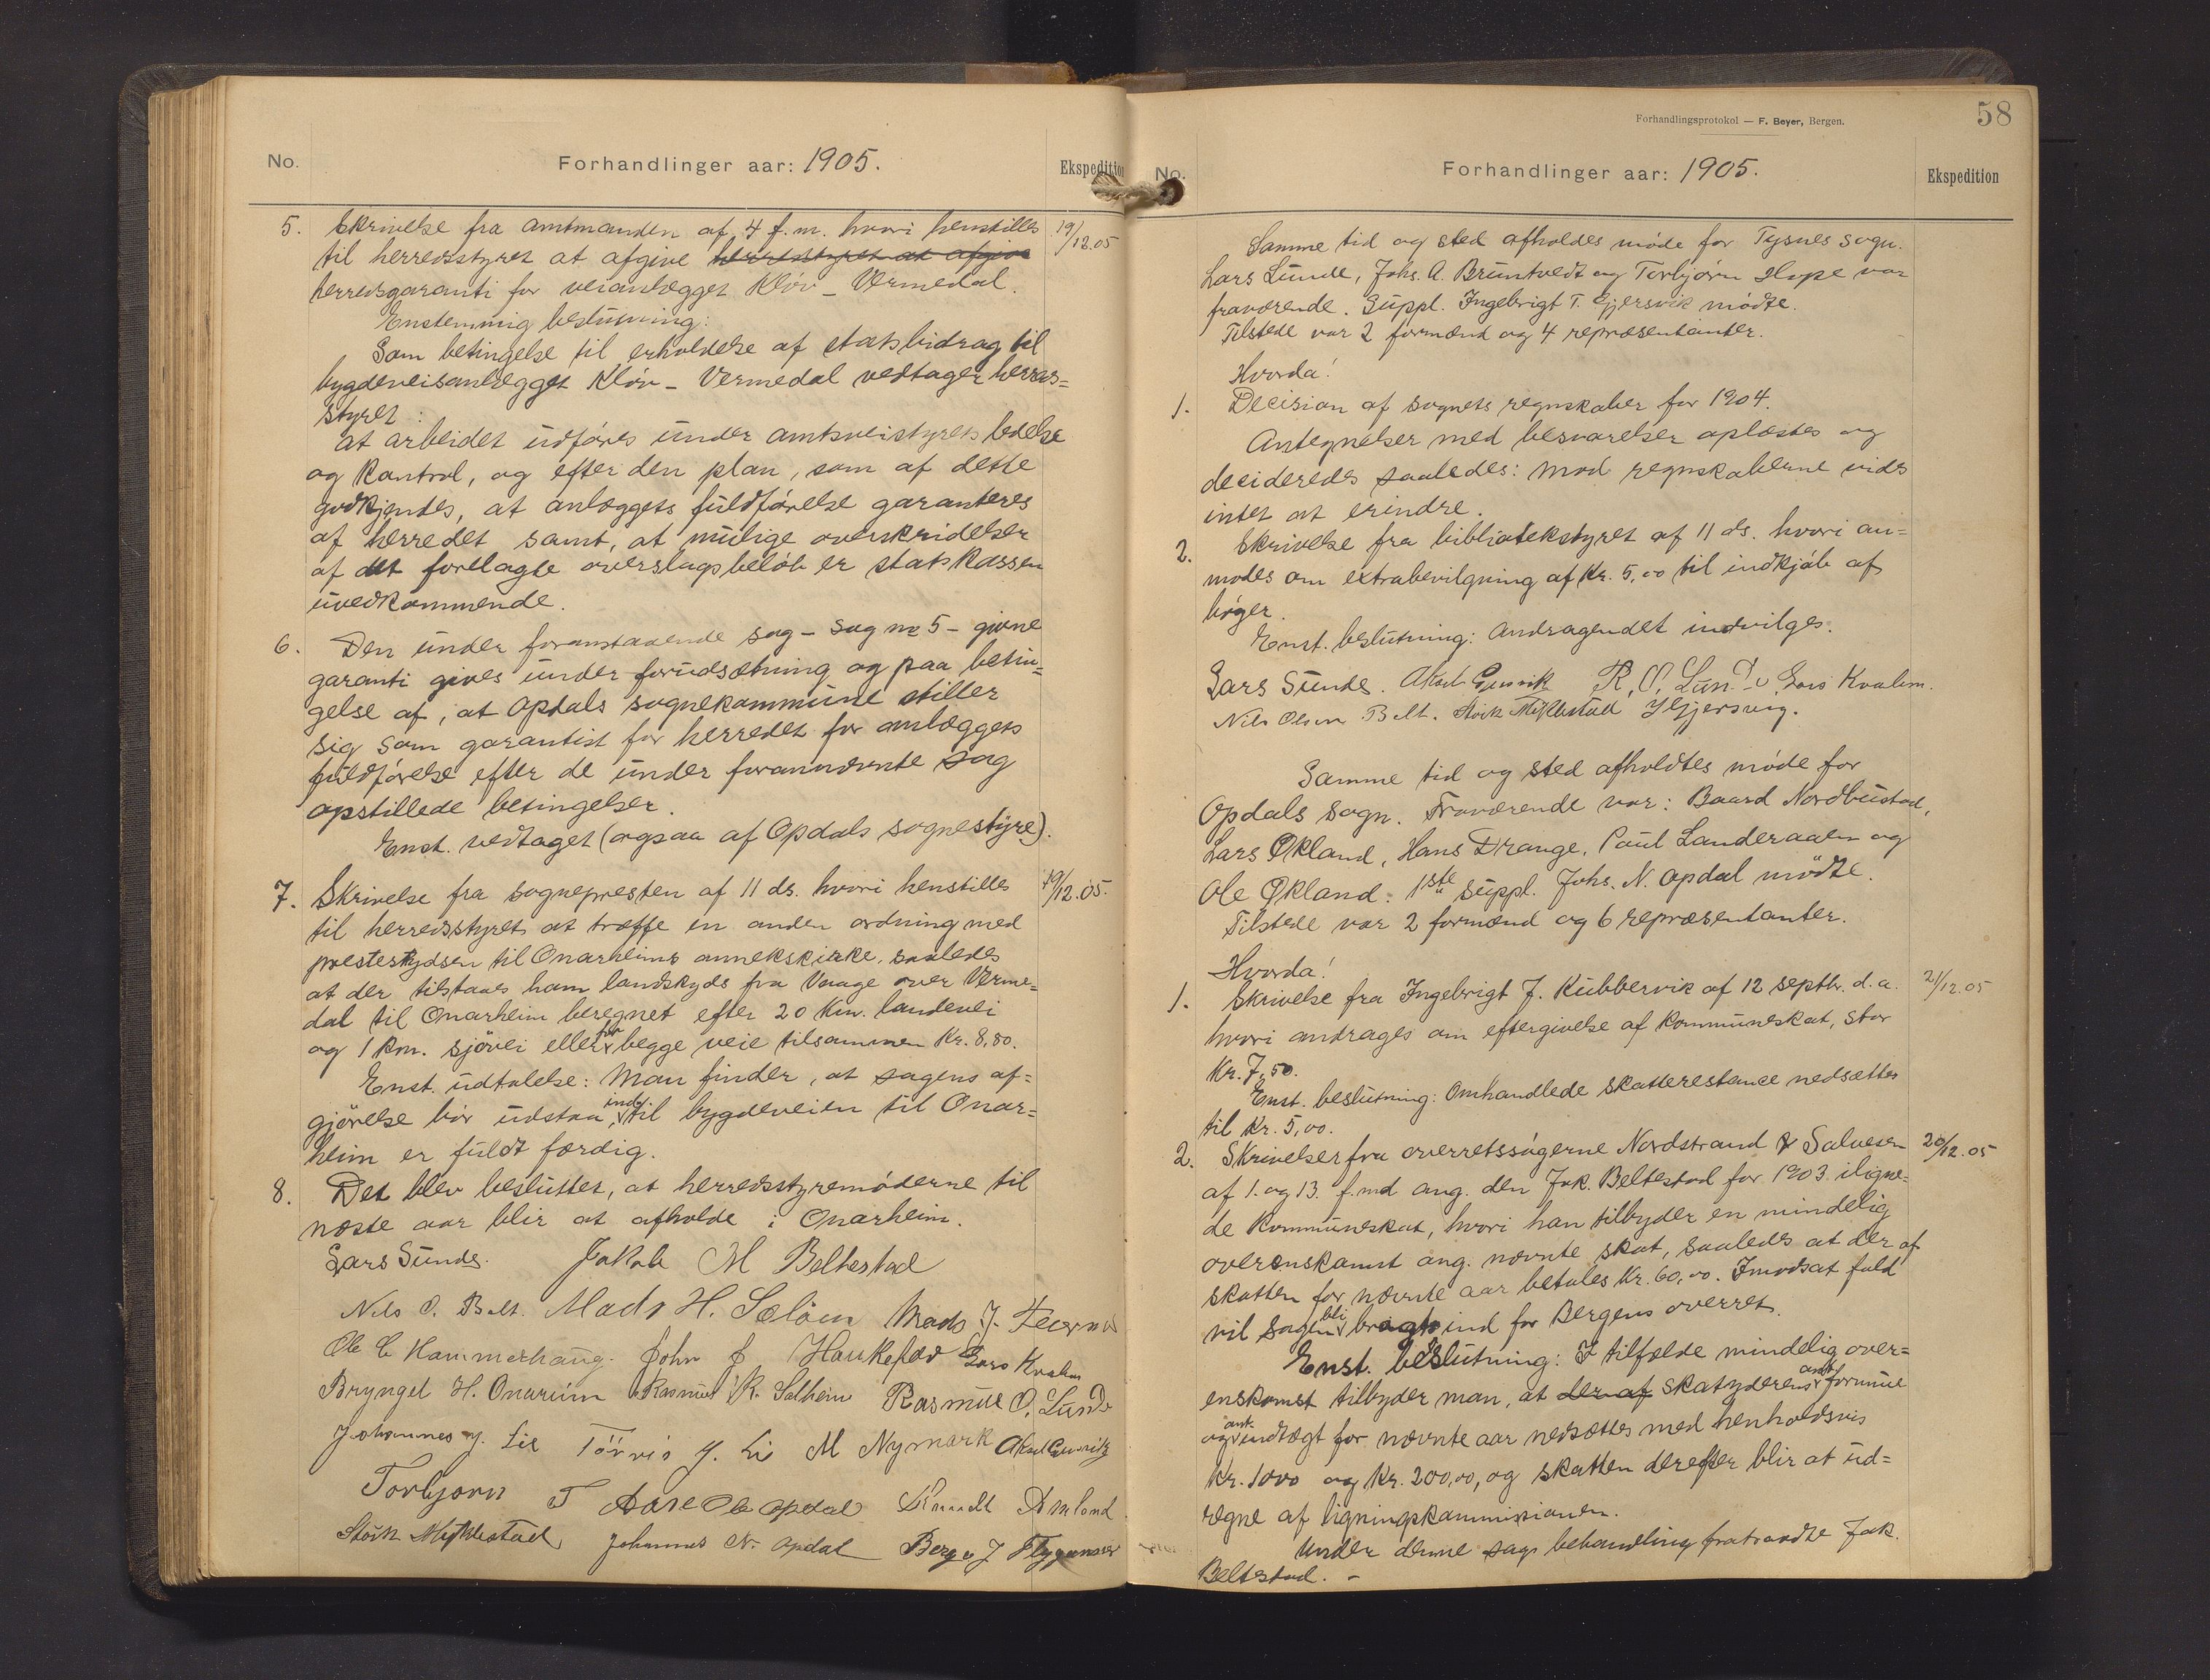 No. Forhandlinger aar: 1905. Ekspedition
5. Skrivelse fra amtmanden af 4 f.m. hvori henstilles 19/12.05
til herredsstyret at afgive herredsstyret at afgive
herredsgaranti for veianlægget Kløv - Vermedal.
Enstemmig beslutning:
Som betingelse til erholdelse af statsbidrag til
bygdeveisanlægget Kløv - Vermedal vedtager herreds=
styret:
at arbeidet udføres under amtsveistyrets ledelse
og kontrol, og efter den plan, som af dette
godkjendes, at anlæggets fuldførelse garanteres
af herredet samt, at mulige overskridelser
af det forelagte overslagsbeløb er statskassen
uvedkommende.
6. Den under foranstaaende sag - sag no 5 - givne
garanti gives under forudsætning og paa betin=
gelse af, at Opdals sognekommune stiller
sig som garantist for herredet for anlæggets
fuldførelse efter de under forannævnte sag
opstillede betingelser.
Enst. vedtaget (ogsaa af Opdals sognestyre).
7. Skrivelse fra sognepresten af 11 ds. hvori henstilles 19/12.05.
til herredsstyret at træffe en anden ordning med
presteskydsen til Onarheims annekskirke, saaledes
at der tilstaaes ham landskyds fra Vaage over Verme=
dal til Onarheim beregnet efter 20 km. landevei
og 1 km. sjøvei eller for begge veie tilsammen Kr. 8,80.
Enst. udtalelse: Man finder, at sagens af=
gjørelse bør udstaa, indtil bygdeveien til Onar=
heim er fuldt færdig.
8. Det blev besluttet, at herredsstyremøderne til
næste aar blir at afholde i Onarheim.
Lars Sunde. Jakob M Beltestad
Nils O. Belt. Mads H. Sælöen Mads J.
Ole C Hammerhaug. John J Haukefær Lars Kvalen
Bryngel H. Onareim Rasmus R. Solheim Rasmus O. Lunde
Johannes J. Lie Törris J. Li M Nymark Aksel Gjersvik
Torbjørn T Aase Ole Opdal Amland
Støik Myklestad Johannes N. Opdal Berge J Flygansvær
Forhandlingsprotokol — F. Beyer, Bergen.
58
No. Forhandlinger aar: 1905. Ekspedition
Samme tid og sted afholdes møde for Tysnes sogn.
Lars Lunde, Johs. A. Bruntvedt og Torbjørn Hope var
fraværende. Suppl. Ingebrigt T. Gjersvik mødte.
Tilstede var 2 formænd og 4 repræsentanter.
Hvorda!
1. Decision af sognets regnskaber for 1904.
Antegnelser med besvarelser oplæstes og
decideredes saaledes: Mod regnskaberne vides
intet at erindre.
2. Skrivelse fra bibliotekstyret af 11 ds. hvori an=
modes om extrabevilgning af Kr. 5,00 til indkjøb af
bøger.
Enst. beslutning: Andragendet indvilges.
Lars Sunde. Aksel Gjersvik R. O. Lunde Lars Kvalen.
Nils Olsen Belt. Støik Myklestad I Gjersvig.
Samme tid og sted afholdtes møde for
Opdals sogn. Fraværende var: Baard Nordbustad,
Lars Økland, Hans Drange, Poul Landeraalen og
Ole Økland. 1ste suppl. Johs. N. Opdal mødte.
Tilstede var 2 formænd og 6 repræsentanter.
Hvorda!
1. Skrivelse fra Ingebrigt J. Kubbervik af 12 septbr. d.a. 21/12.05
hvori andrages om eftergivelse af kommuneskat, stor
Kr. 7,50.
Enst. beslutning: Omhandlede skatterestance nedsættes
til Kr. 5,00.
2. Skrivelser fra overretssagførerne Nordstrand & Salvesen 20/12.05
af 1. og 13. f. md ang. den Jak. Beltestad for 1903 iligne=
de kommuneskat, hvori han tilbyder en mindelig
overenskomst ang. nævnte skat, saaledes at der af
skatten for nævnte aar betales Kr. 60,00. I modsat fald
vil sagen bli bragt ind for Bergens overret.
Enst. beslutning: I tilfælde mindelig over=
enskomst tilbyder man, at der af skatyderens ant. formue
og ant. indtægt for nævnte aar nedsættes med henholdsvis
Kr. 1000 og Kr. 200,00, og skatten derefter blir at ud=
regne af ligningskommissionen.
Under denne sags behandling fratraadte Jak.
Beltestad. -